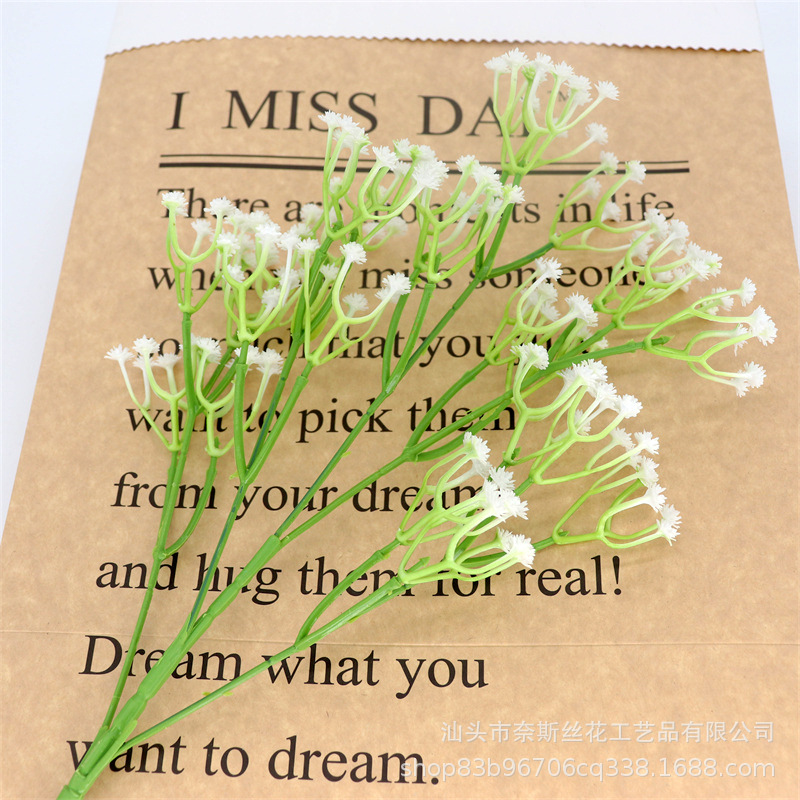 I MISS DAY
There are moments in life
when you miss someone
so much that you just
want to pick them
from your dreams
and hug them for real!
Dream what you
want to dream.
汕头市奈斯丝花工艺品有限公司
shop83b96706cq338.1688.com